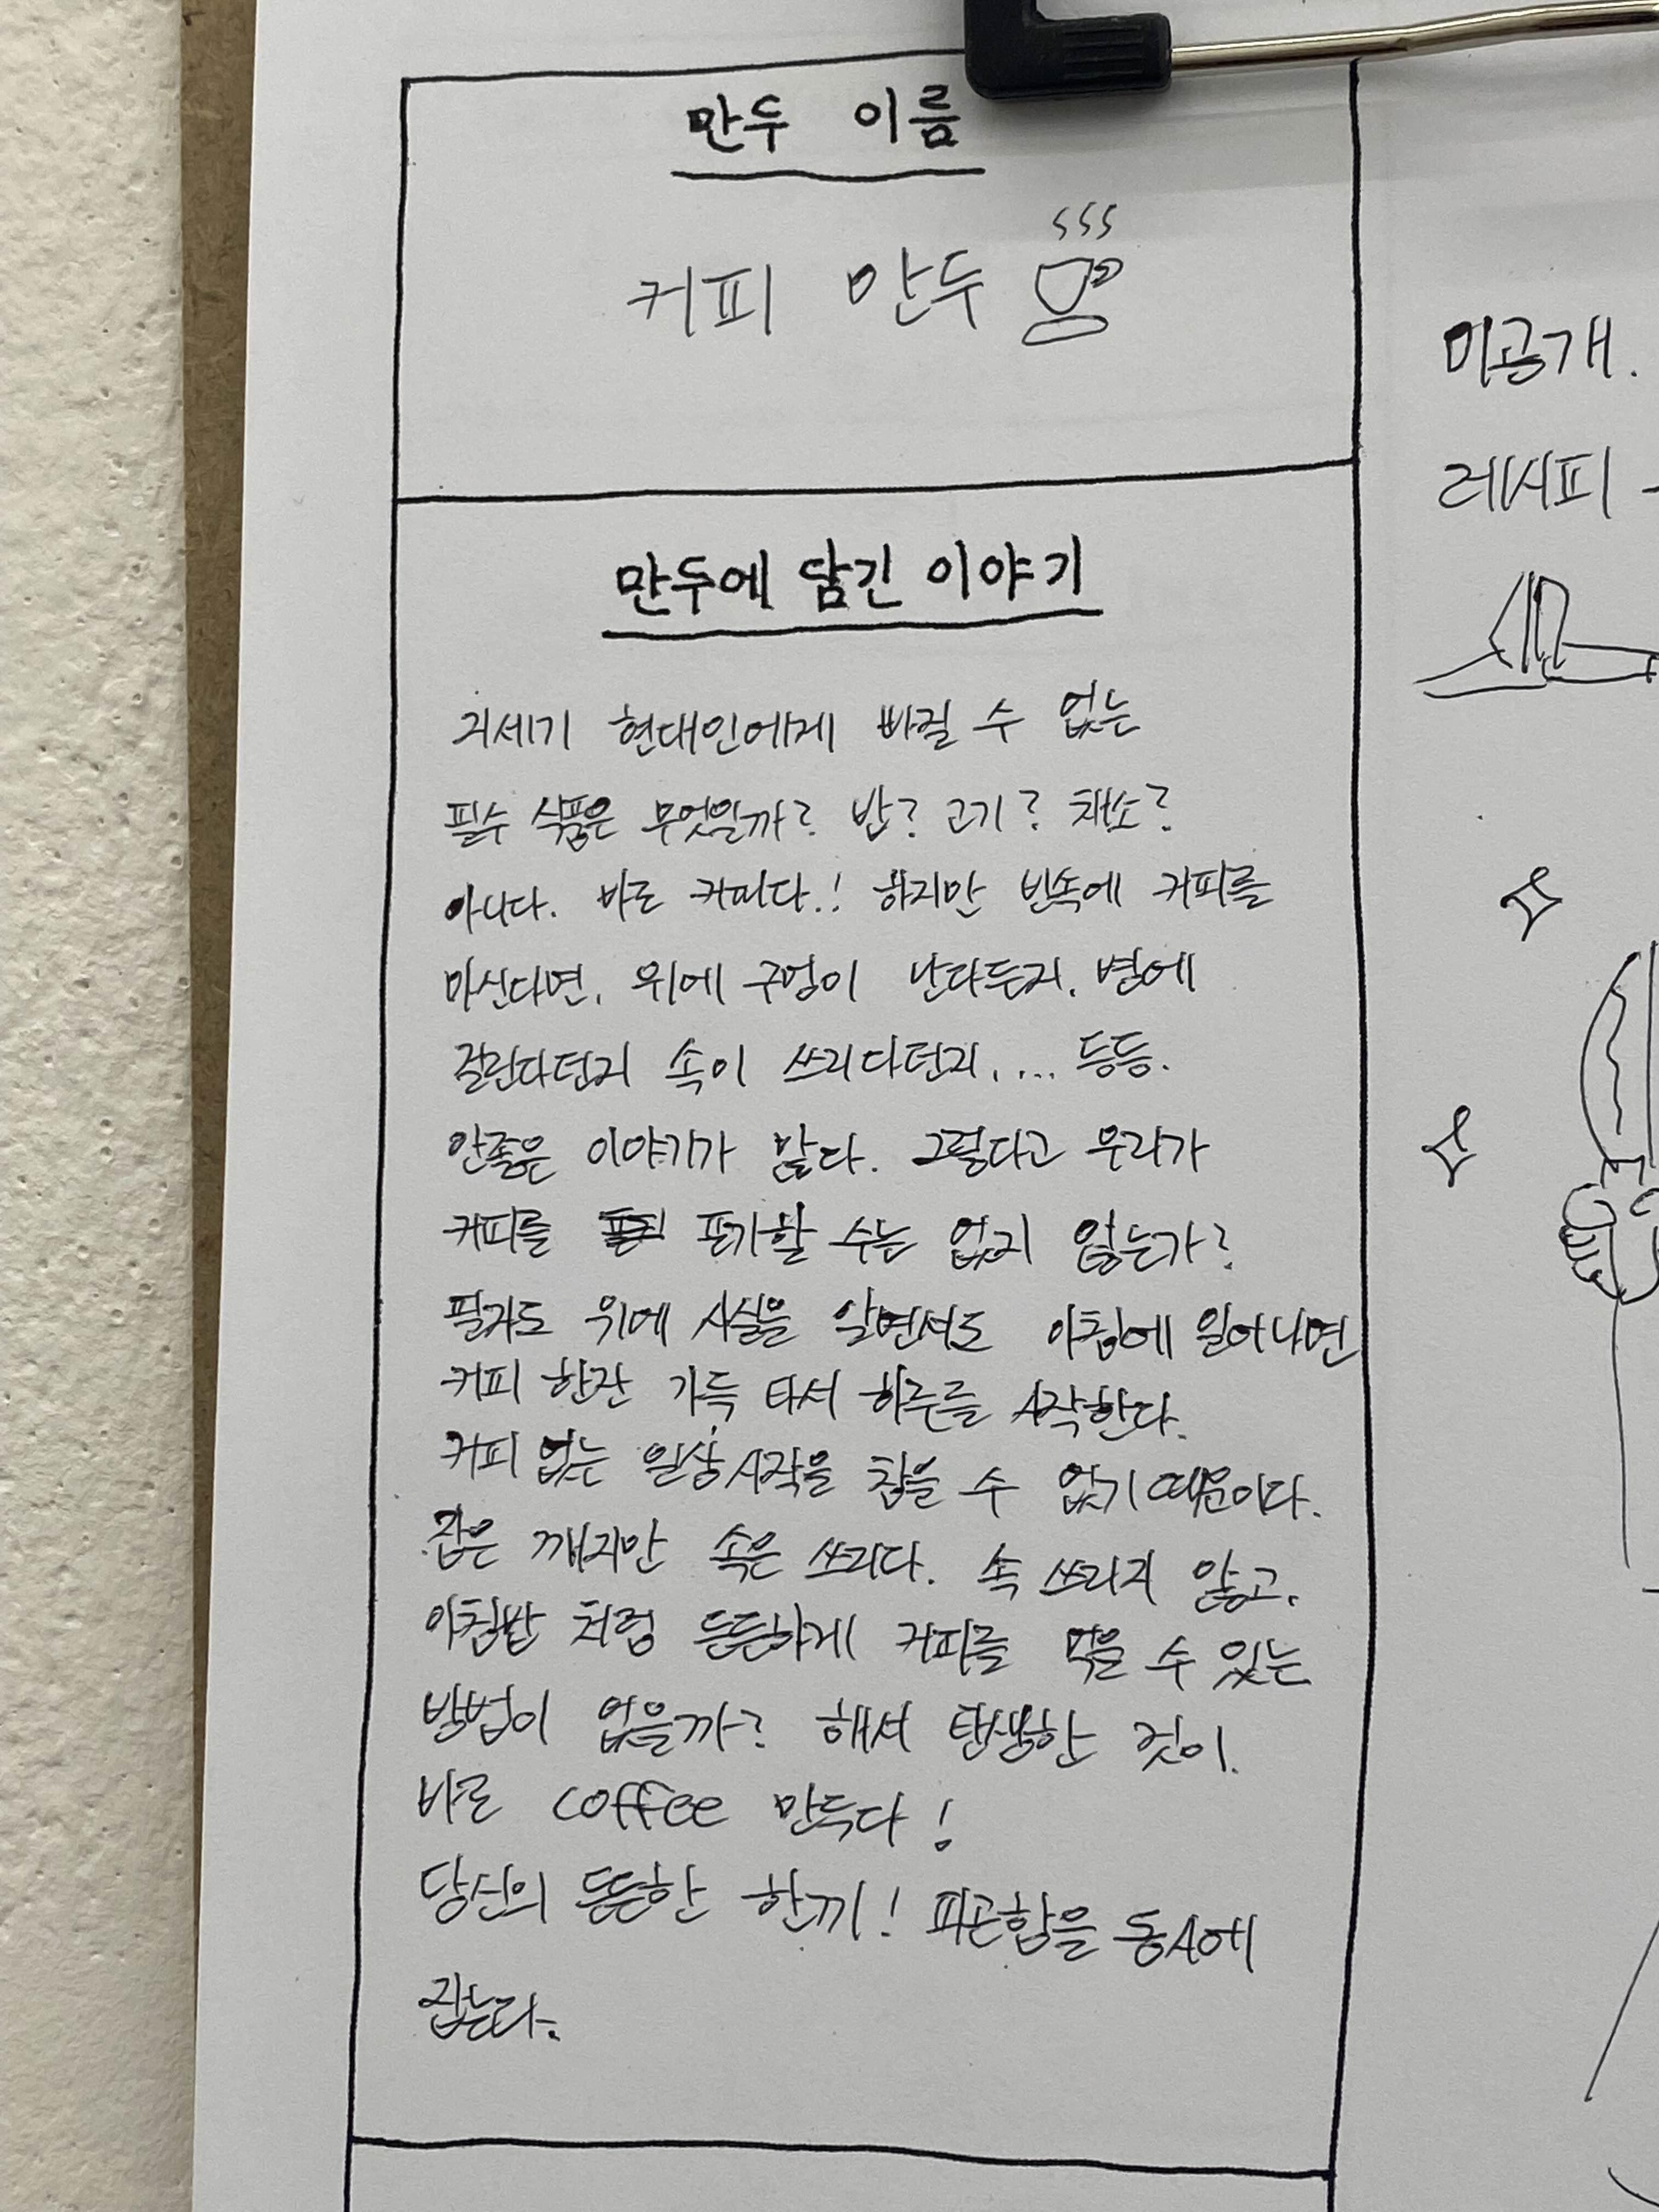 만두 이름
커피 만두
만두에 담긴 이야기
21세기 현대인에게 빠질 수 없는
필수 식품은 무엇일까? 밥? 고기? 채소?
아니다. 바로 커피다.! 하지만 빈속에 커피를
마신다면, 위에 구멍이 난다든지, 병에
걸린다던지 속이 쓰리다던지.... 등등.
안좋은 이야기가 많다. 그렇다고 우리가
커피를 포기할 수는 없지 않는가?
필자도 위에 사실을 알면서도 아침에 일어나면
커피 한잔 가득 타서 하루를 시작한다.
커피 없는 일상 시작을 참을 수 없기 때문이다.
잠은 깨지만 속은 쓰리다. 속 쓰리지 않고,
아침밥 처럼 든든하게 커피를 먹을 수 있는
방법이 없을까? 해서 탄생한 것이.
바로 coffee 만두다!
당신의 든든한 한끼! 피곤함을 동시에
잡는다.
미공개.
레시피